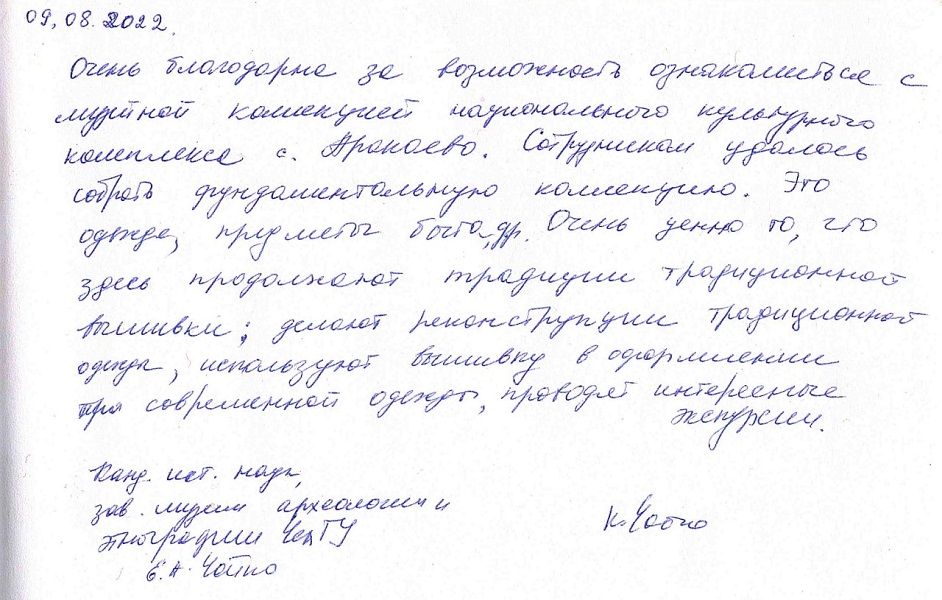 09.08.2022.
Очень благодарна за возможность ознакомиться с
музейной коллекцией национального культурного
комплекса с. Аракаево. Сотрудникам удалось
собрать фундаментальную коллекцию. Это
одежда, предметы быта, др. Очень ценно то, что
здесь продолжают традиции традиционной
вышивки; делают реконструкции традиционной
одежды, используют вышивку в оформлении
современной одежды, проводят интересные
экскурсии.
Канд. ист. наук,
зав. музеем археологии и
этнографии ЧелГУ
Е.А. Чайко